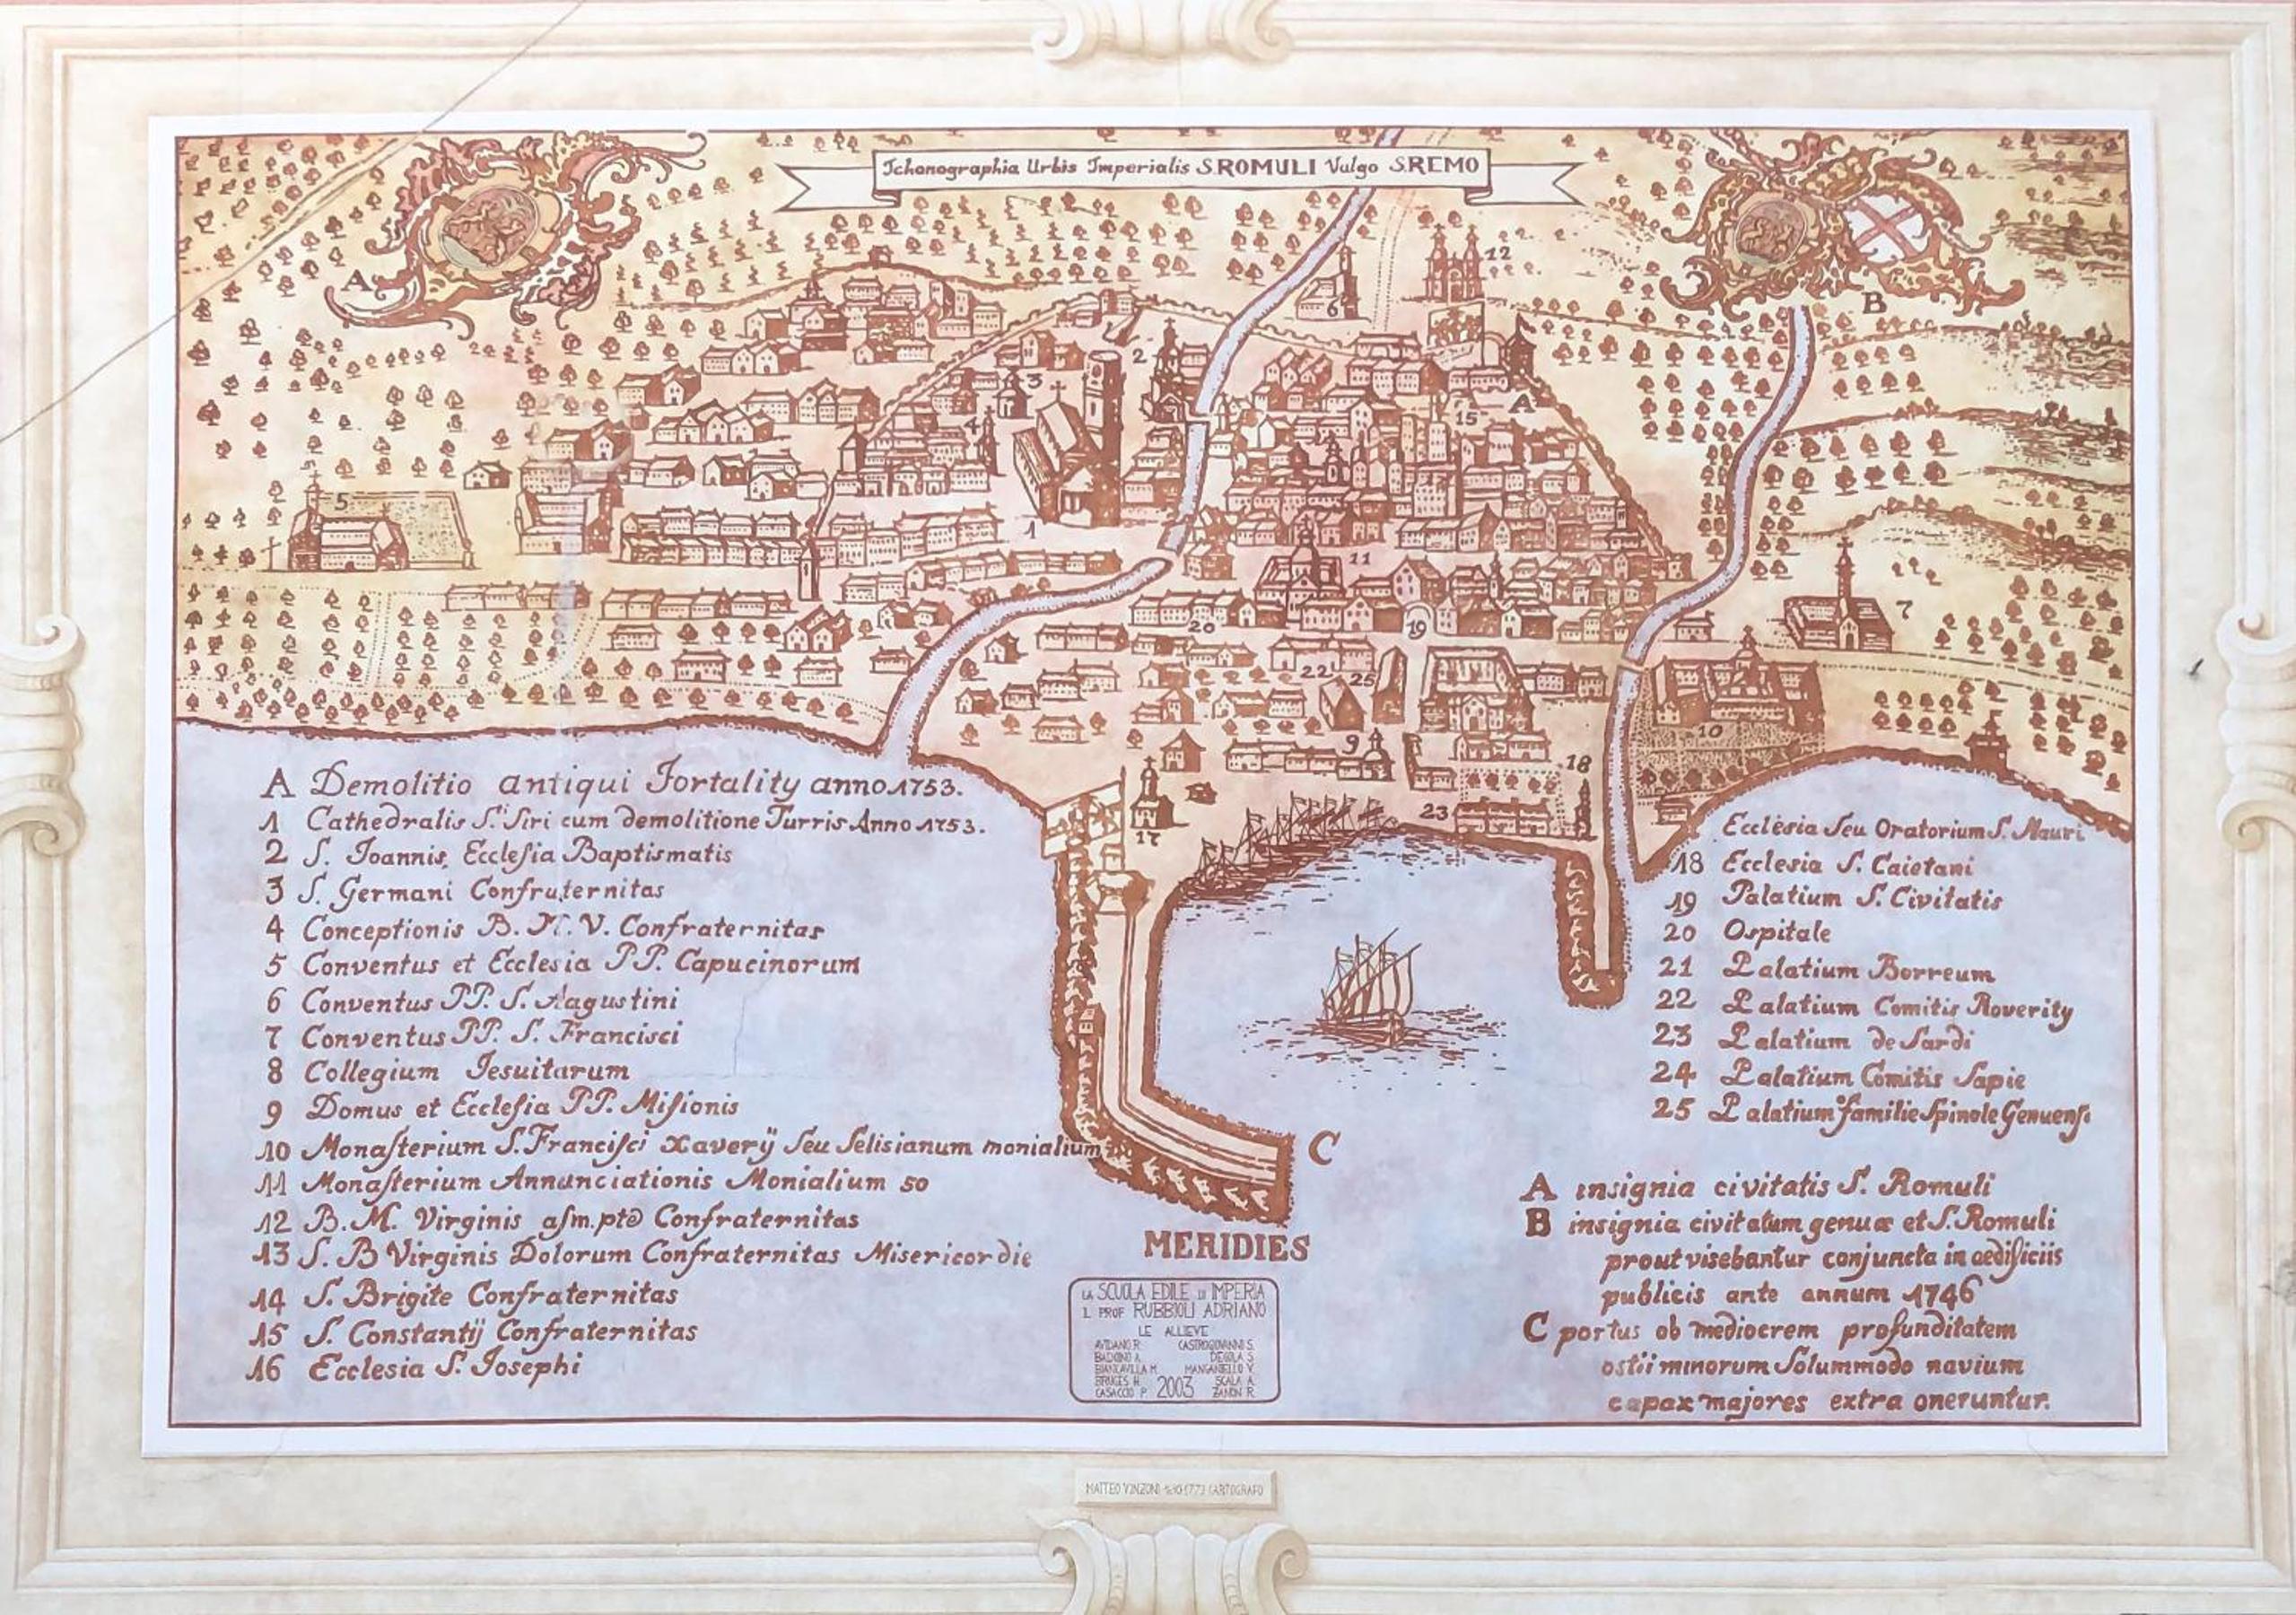 Ichonographia Urbis Imperialis S.ROMULI Vulgo S.REMO
A
B
12
6
2
3
4
15
A
5
1
11
7
20
19
22
25
10
9
18
23
17
A Demolitio antiqui Fortality anno 1753.
1 Cathedralis S.ti Siri cum demolitione Turris Anno 1753.
2 S. Joannis Ecclesia Baptismatis
3 S. Germani Confraternitas
4 Conceptionis B. M. V. Confraternitas
5 Conventus et Ecclesia PP. Capucinorum
6 Conventus PP. S. Augustini
7 Conventus PP. S. Francisci
8 Collegium Iesuitarum
9 Domus et Ecclesia PP. Misionis
10 Monasterium S. Francisci Xaverÿ Seu Selisianum monialium
11 Monasterium Annunciationis Monialium so
12 B. M. Virginis
Confraternitas
13 S. B Virginis Dolorum Confraternitas Misericordie
14 S. Brigite Confraternitas
15 S. Constantÿ Confraternitas
16 Ecclesia S. Josephi
Ecclesia Seu Oratorium S. Mauri
18 Ecclesia S. Caietani
19 Palatium S. Civitatis
20 Ospitale
21 Palatium Borreum
22 Palatium Comitis Roverity
23 Palatium de Sardi
24 Palatium Comitis Sapie
25 Palatium familie Spinole Genuens.
A insignia civitatis S. Romuli
B insignia civitatum genuæ et S. Romuli
prout visebantur conjuncta in aedificiis
publicis ante annum 1746
C portus ob mediocrem profunditatem
ostii minorum Solummodo navium
capax majores extra oneruntur.
C
MERIDIES
LA SCUOLA EDILE DI IMPERIA
IL PROF RUBBIOLI ADRIANO
LE ALLIEVE
AVIDANO R. CASTROGIOVANNI S.
DEGOLA S.
BIANCAVILLA M. MANGANIELLO V.
BRUGES H. SCALA A.
CASACCIO P. 2003 ZANON R.
MATTEO VINZONI
1773 CARTOGRAFO